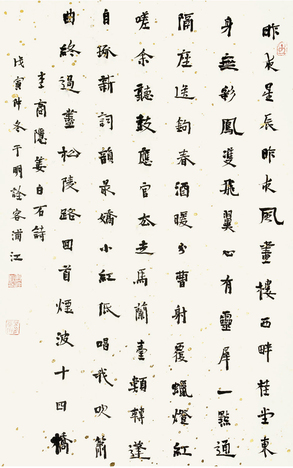 昨夜星辰昨夜風畫樓西畔桂堂東
身無彩鳳雙飛翼心有靈犀一點通
隔座送鉤春酒暖分曹射覆蠟燈紅
嗟余聽鼓應官去走馬蘭臺類轉蓬
自琢新詞韻最嬌小紅低唱我吹簫
曲終過盡松陵路回首煙波十四橋
李商隱姜白石詩
戊寅仲冬于明詮客浦江